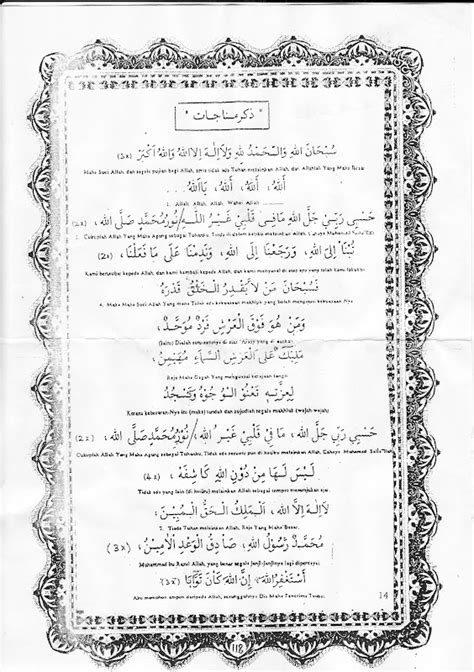 " ذكر مناجات "
سُبْحَانَ اللهِ وَالْحَمْدُ لِلهِ وَلَا إِلَهَ إِلَّا اللهُ وَاللهُ أَكْبَرُ (5x)
Maha Suci Allah, dan segala pujian bagi Allah, tiada Tuhan melainkan Allah, dan Allahlah Yang Maha Besar
اَللهُ، اَللهُ، اَللهُ، يَا اَللهُ . . .
1. Allah, Allah, Allah, Wahai Allah
حَسْبِي رَبِّيْ جَلَّ اللهُ مَافِيْ قَلْبِيْ غَيْرُ اللهِ / نُوْرُ مُحَمَّدٍ صَلَّى اللهُ، (2x)
2. Cukuplah Allah Yang Maha Agung sebagai Tuhanku, Tiada di dalam melainkan Allah, Cahaya Muhammad
تُبْنَا إِلَى اللهِ، وَرَجَعْنَا إِلَى اللهِ، وَنَدِمْنَا عَلَى مَا فَعَلْنَا، (2x)
Kami bertaubat kepada Allah, dan kami kembali kepada Allah, dan kami menyesal di atas apa yang telah kami lakukan
فَسُبْحَانَ مَنْ لَا يَقْدِرُ الْخَلْقُ قَدْرَهُ
4. Maka Maha Suci Allah Yang mana Tidak ada kekuasaan makhluk yang boleh mengatasi kekuasaan-Nya
وَمَنْ هُوَ فَوْقَ الْعَرْشِ فَرْدٌ مُوَحَّدٌ،
(Iaitu) Dialah
مَلِيْكٌ عَلَى الْعَرْشِ السَّمَاءِ مُهَيْمِنٌ،
Raja Maha Gagah Yang menguasai kerajaan langit
لِعِزَّتِهِ تَعْنُو الْوُجُوهُ وَتَسْجُدُ
Kerana kebesaran-Nya itu (maka) tunduk dan sujudlah segala makhluk (wajah-wajah)
حَسْبِي رَبِّي جَلَّ اللهُ، مَا فِي قَلْبِي غَيْرُ اللهِ / نُوْرُ مُحَمَّدٍ صَلَّى اللهُ، (2x)
Cukuplah Allah Yang Maha Agung sebagai Tuhanku, Tidak ada melainkan Allah, Cahaya Muhammad
لَيْسَ لَهَا مِنْ دُوْنِ اللهِ كَاشِفَةٌ، (4x)
Tidak ada yang lain (di hatiku) melainkan Allah sebagai tempat menunjukan ajar
لَا إِلَهَ إِلَّا اللهُ، اَلْمَلِكُ الْحَقُّ الْمُبِيْنُ،
7. Tiada Tuhan melainkan Allah, Raja Yang Maha Benar
مُحَمَّدٌ رَسُوْلُ اللهِ، صَادِقُ الْوَعْدِ الْأَمِيْنُ، (3x)
Muhammad itu Rasul Allah, yang benar segala janji-janjinya lagi dipercayai
أَسْتَغْفِرُ اللهَ، إِنَّ اللهَ كَانَ تَوَّابًا (3x)
Aku memohon ampun daripada Allah, sesungguhnya Dia Maha Penerima Taubat
14
118